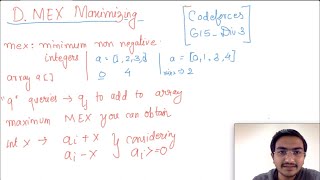 D. MEX Maximizing
[Codeforces
615-Div3]
mex: minimum non negative
integers
a = [0,1,2,3]
0 4
a = [0,1,3,4]
mex → 2
array a[]
"q" queries → qj to add to array
maximum MEX you can obtain
int x → ai + x
ai - x
} considering
ai >= 0